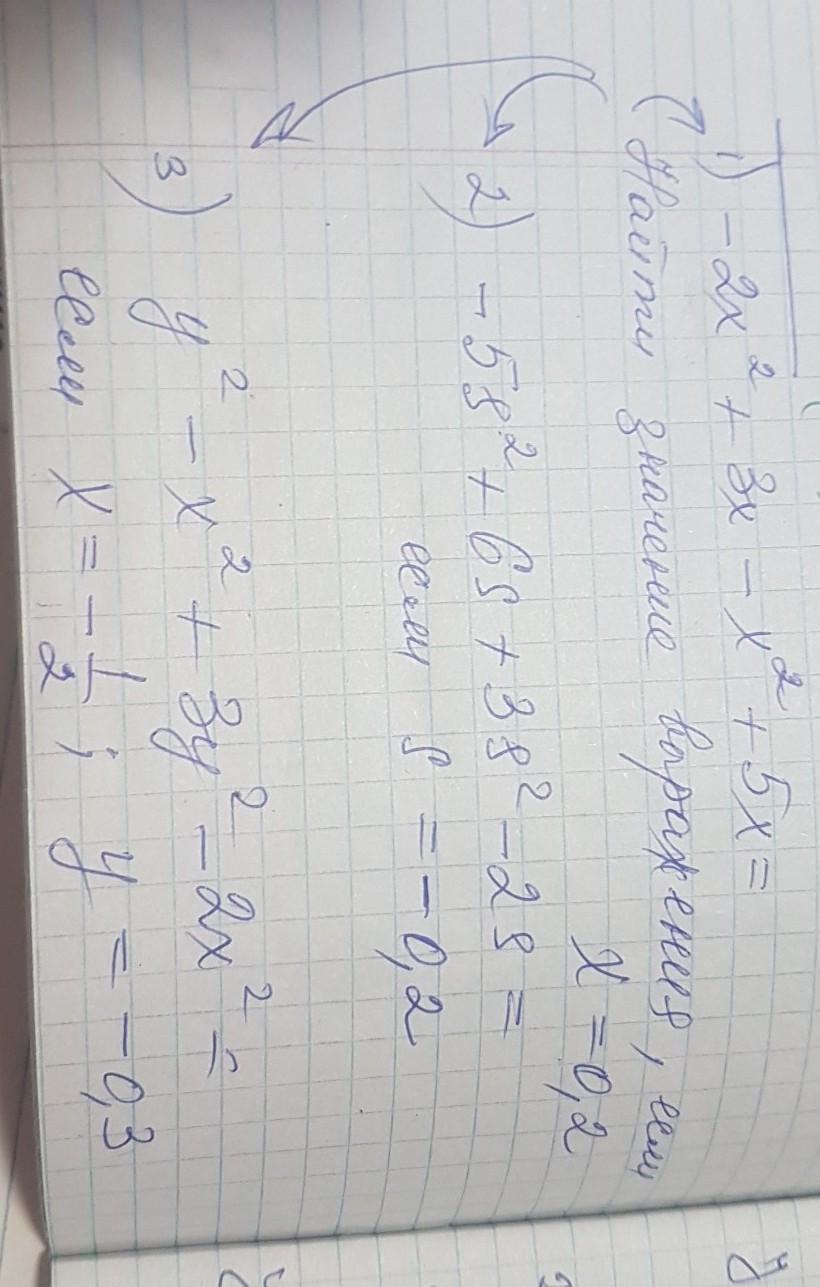 1) -2x² + 3x - x² + 5x =
Найти значение выражения, если
x = 0,2
2) -5s² + 6s + 3s² - 2s =
если s = -0,2
3) y² - x² + 3y² - 2x² =
если x = -1/2; y = -0,3